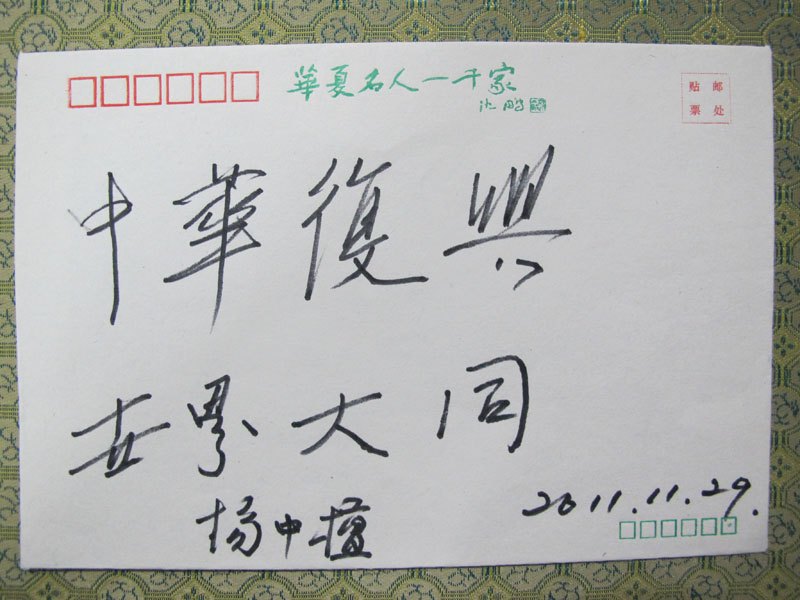 華夏名人一千家
沈鹏
贴邮
票处
中華復興
世界大同
2011.11.29.